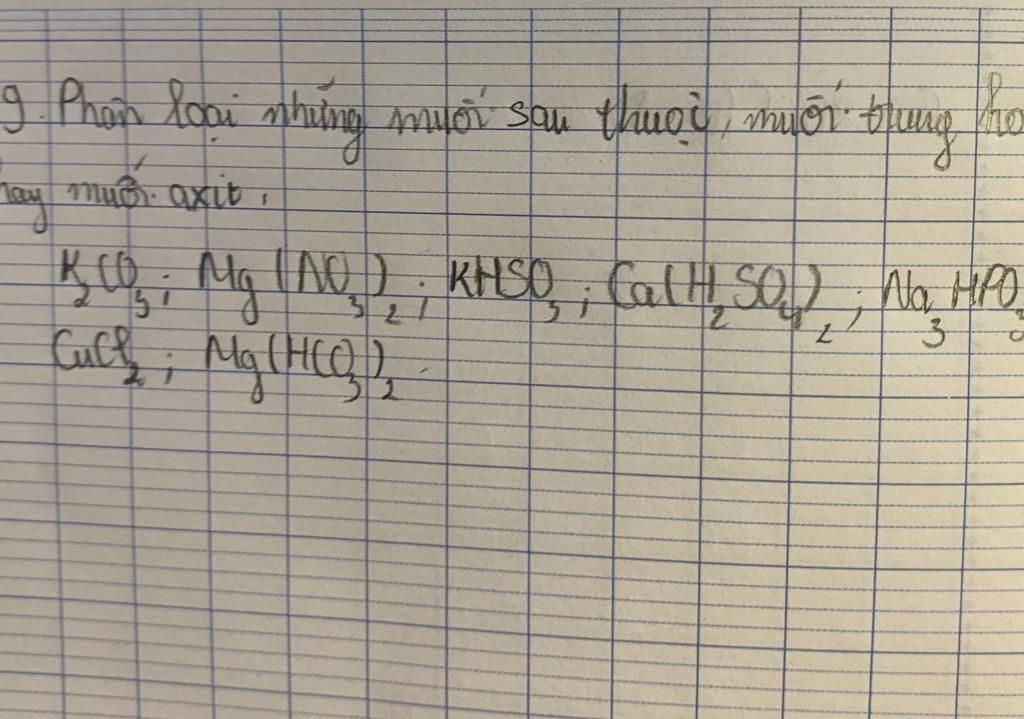 9. Phân loại những muối sau thuộc, muối trung ho
hay muối axit.
K₂CO₃; Mg(NO₃)₂; KHSO₃; Ca(H₂SO₄)₂; Na₃HPO₃
CuCl₂; Mg(HCO₃)₂.